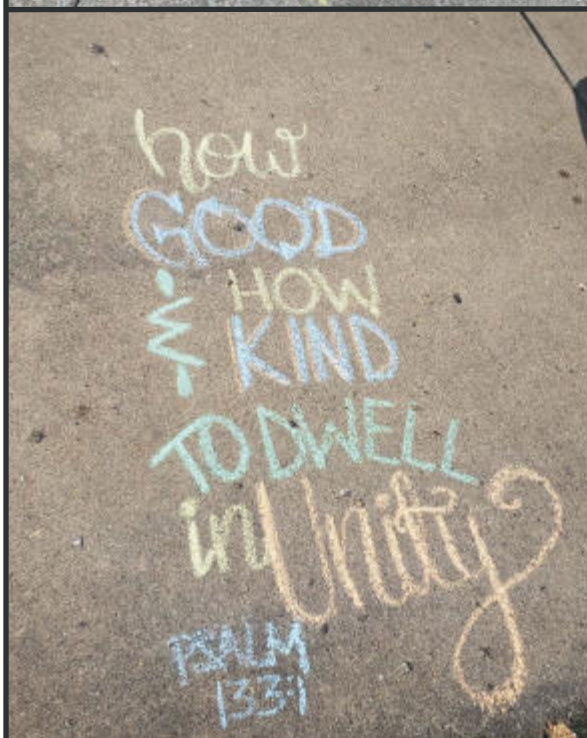 how
GOOD
& HOW
KIND
TO DWELL
in Unity
PSALM
133:1